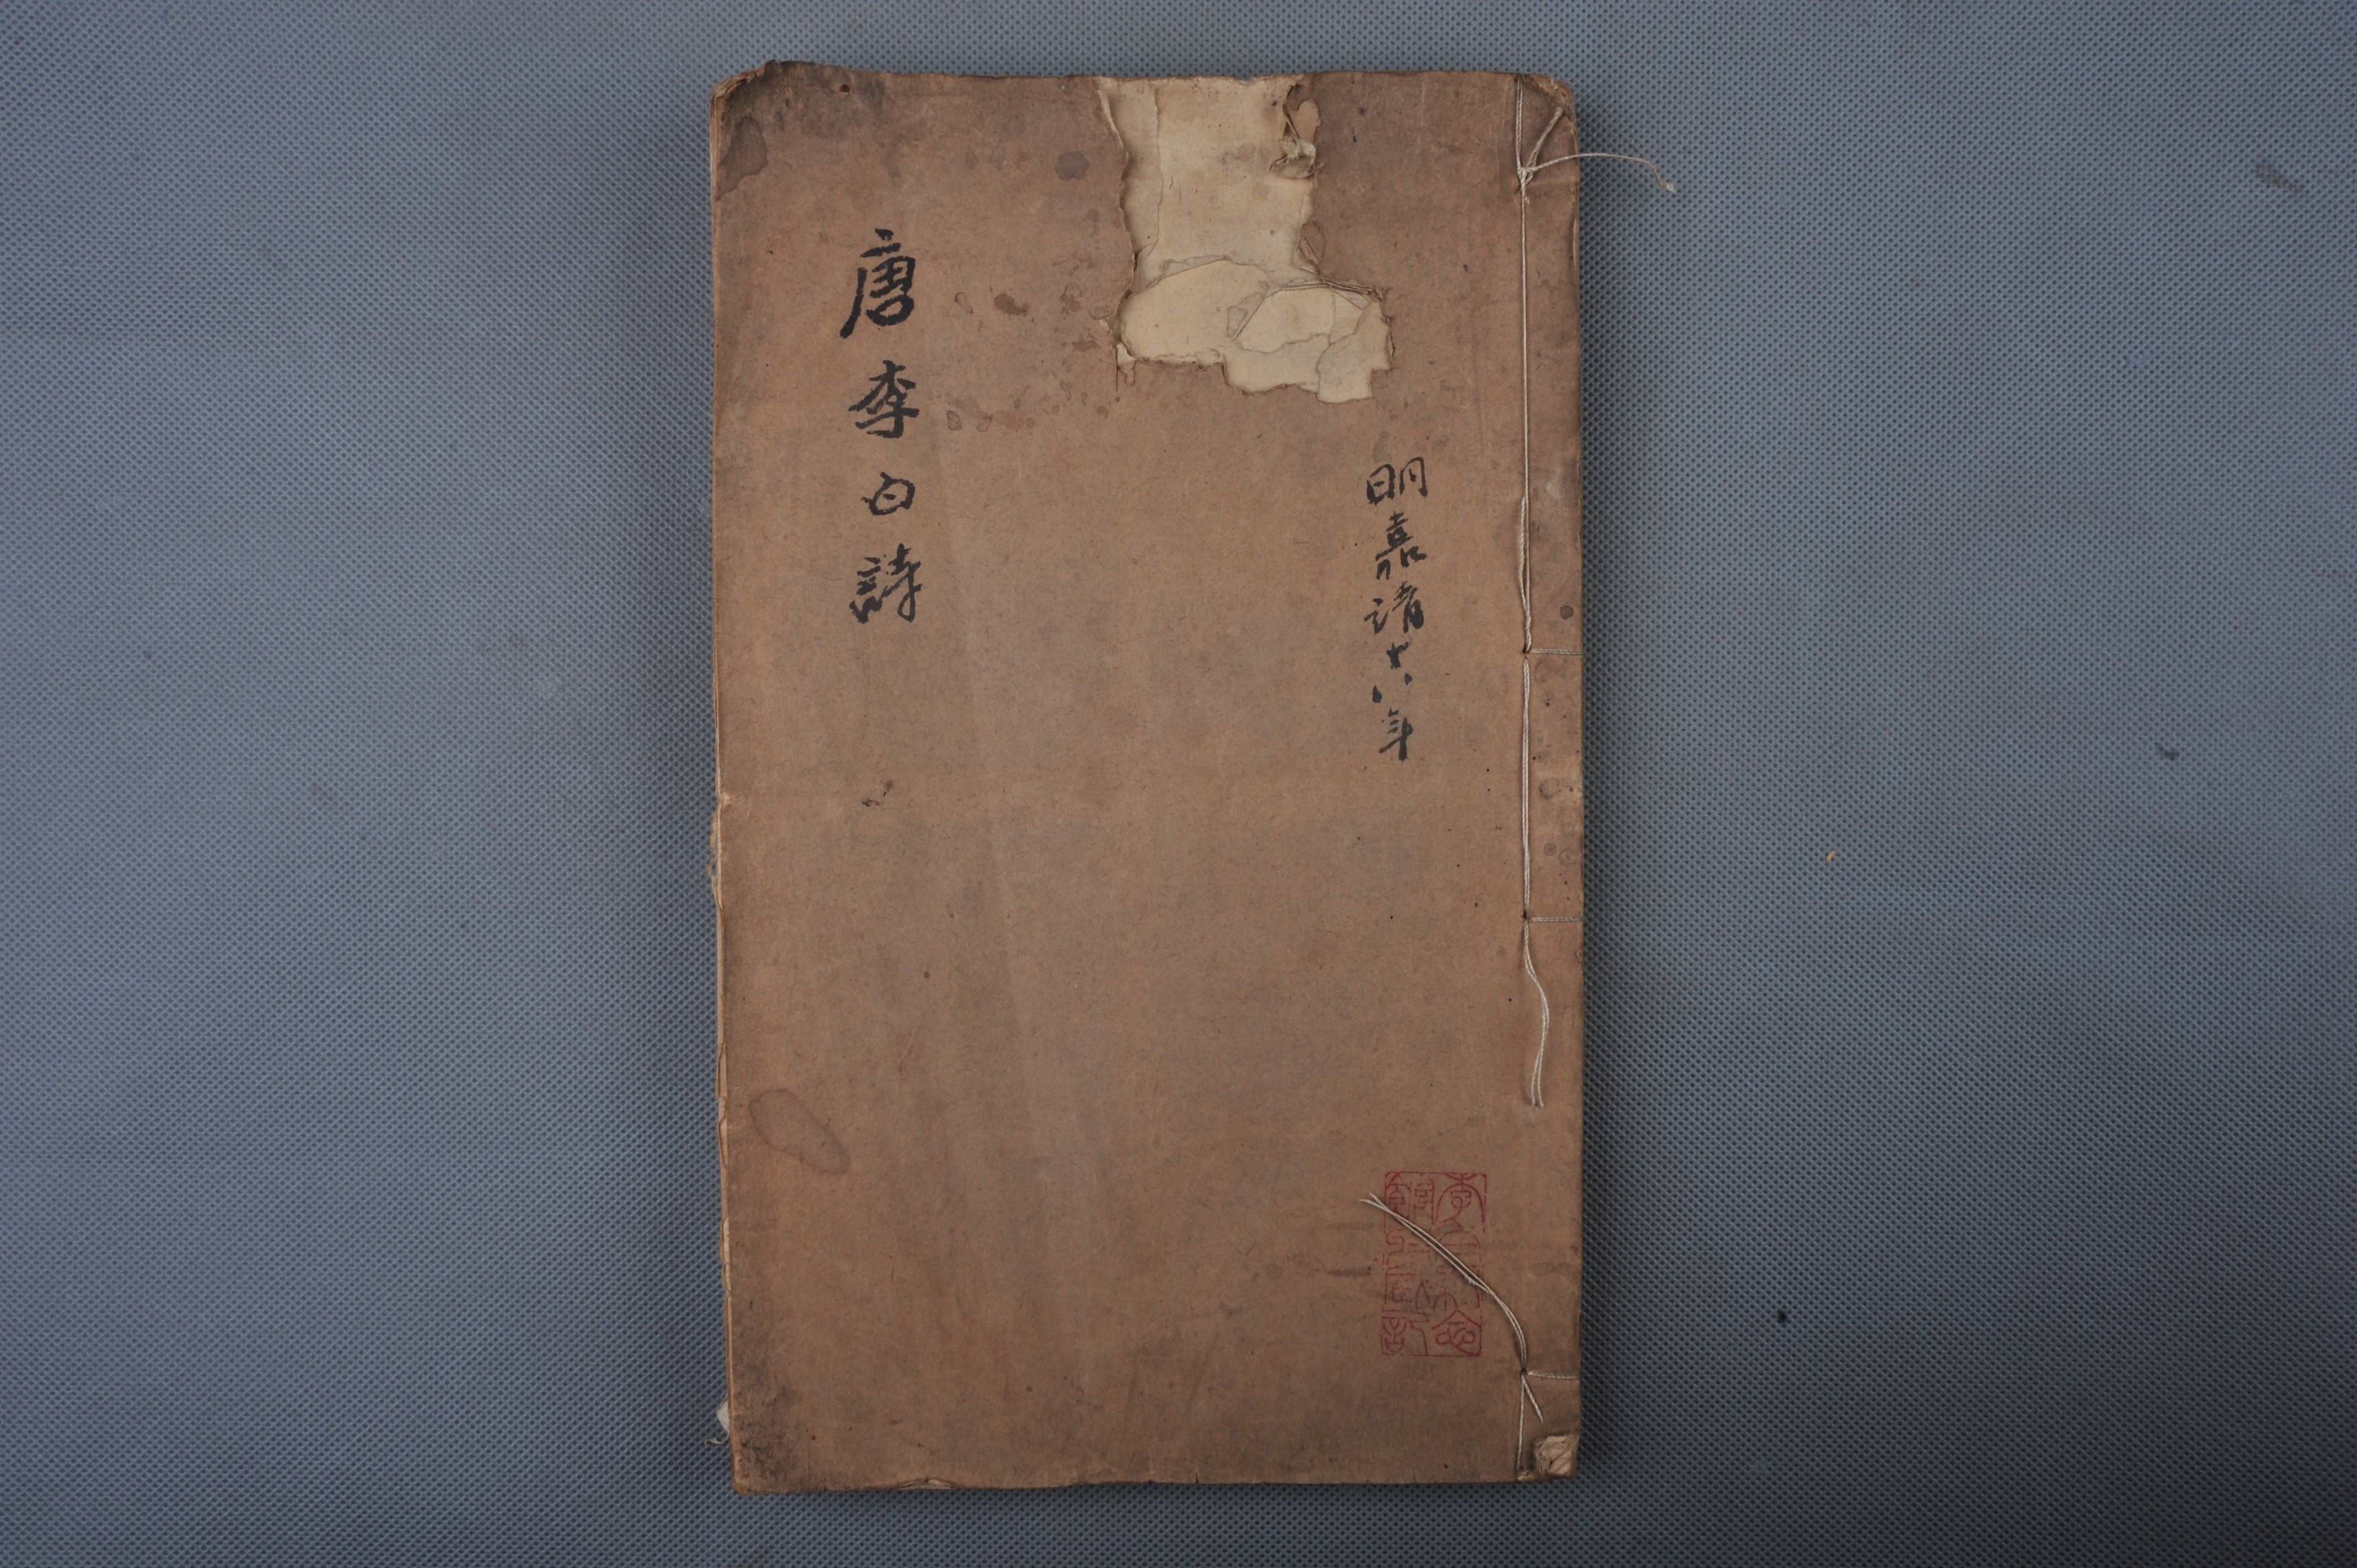 明嘉靖廿八年
唐李白詩